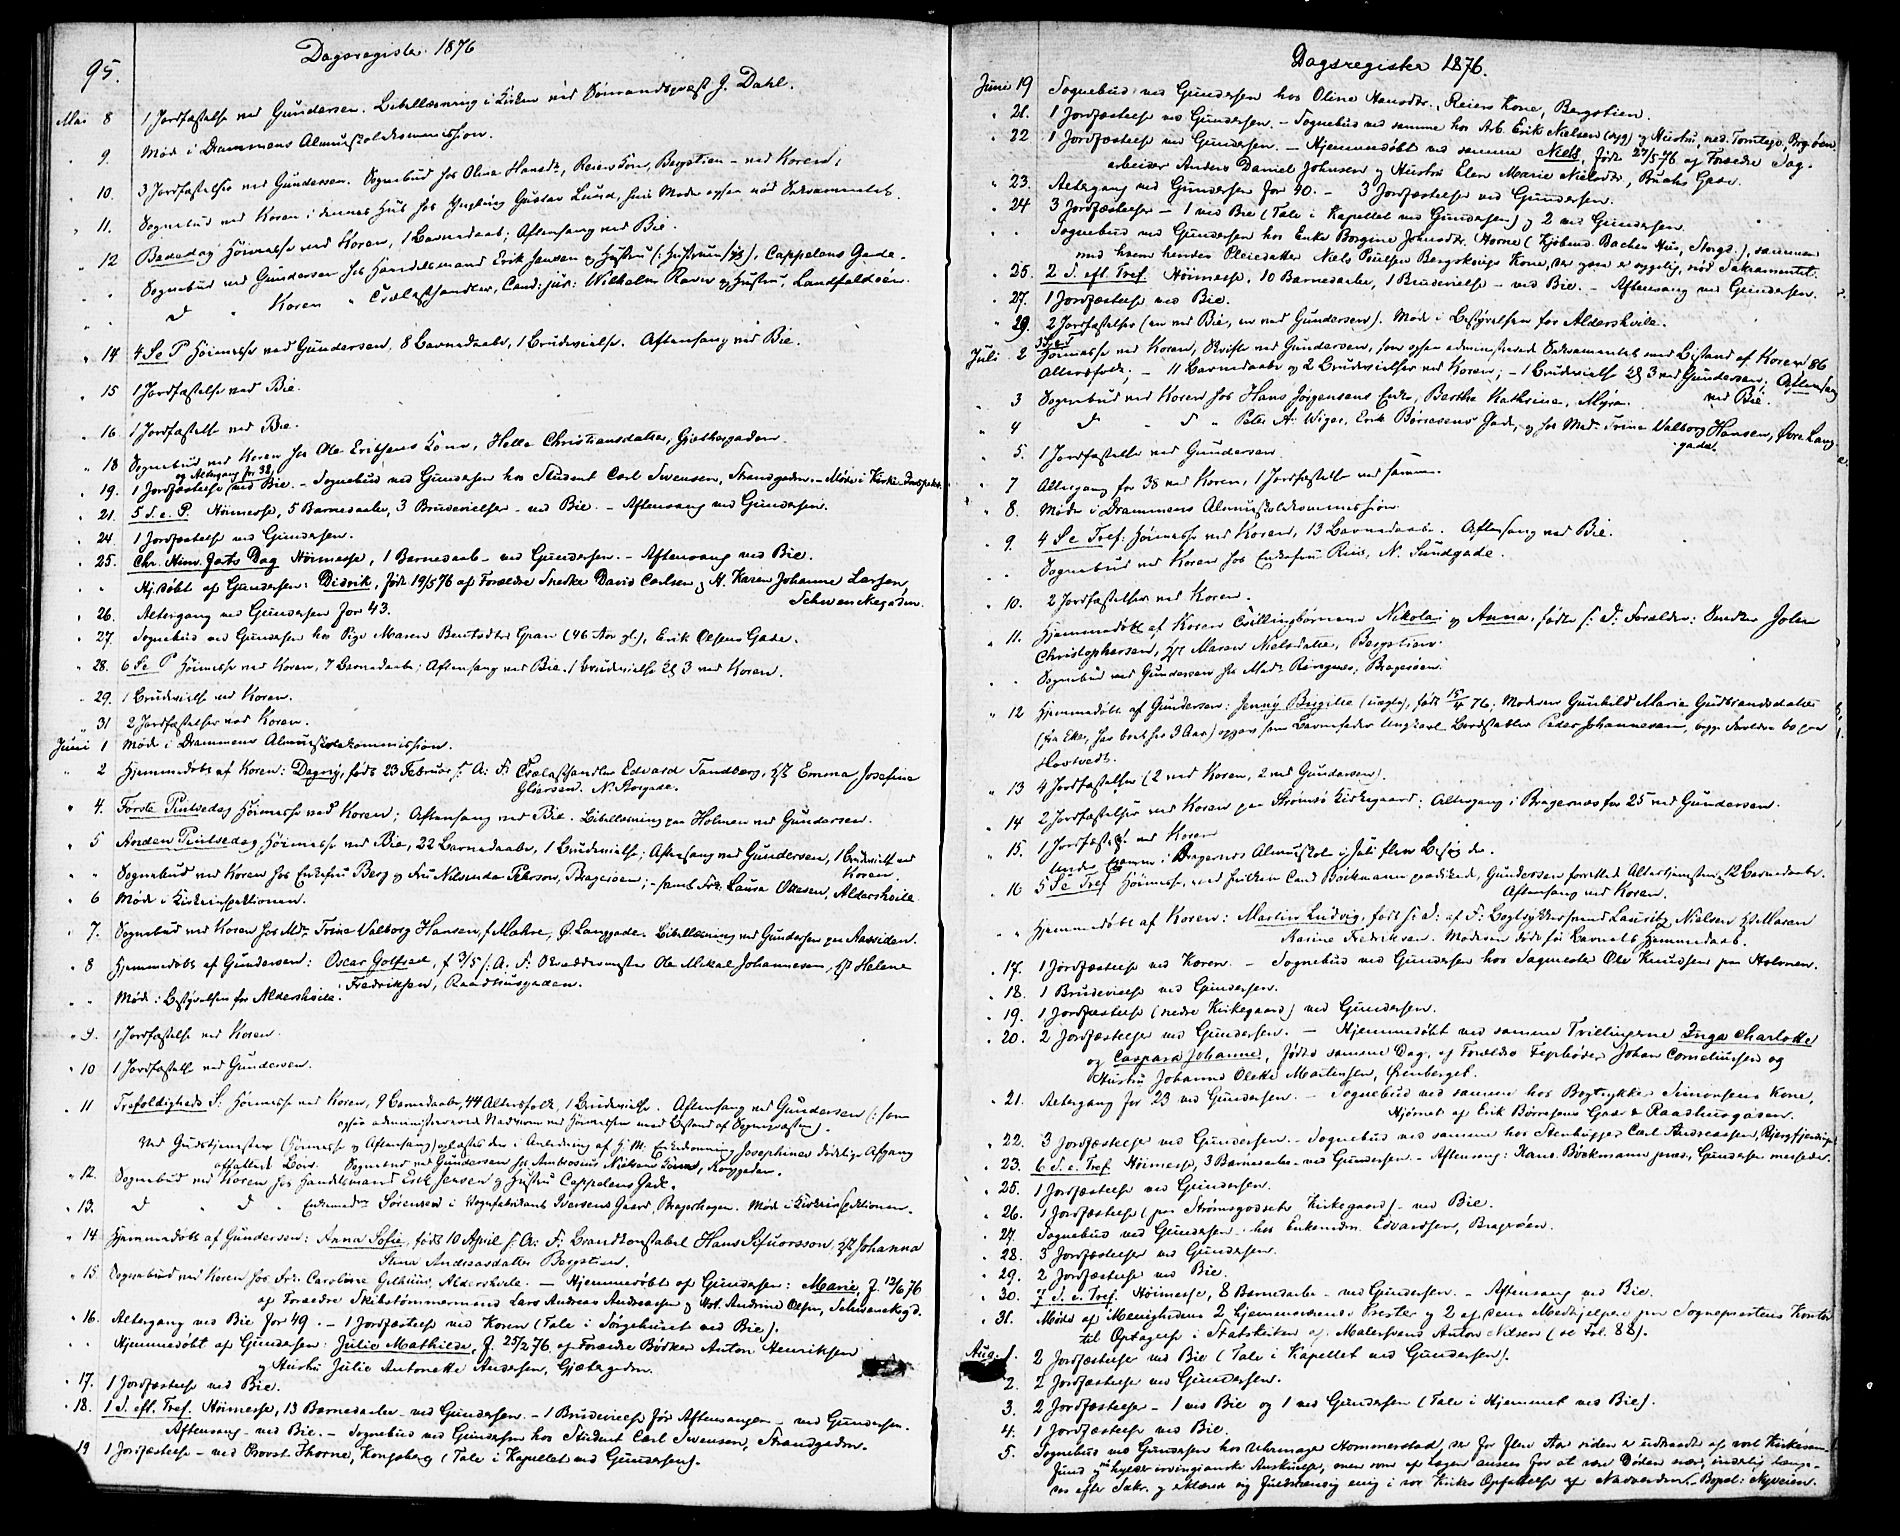 95.
Dagsregister 1876
Mai 8 1 Jordfæstelse ved Gundersen. Bibellæsning i Kirken ved Sømandsprest J. Dahl.
" 9. Møde i Drammens Almueskolekommission.
" 10. 3 Jordfæstelser ved Gundersen. Sognebud hos Oline Hansdt., Reiers Kone, Bergstien - ved Koren.
" 11. Sognebud ved Koren i dennes Hus hos Yngling Gustav Lund, hvis Moder ogsaa nød Sakramentet
" 12 Bededag Høimesse ved Koren, 1 Barnedaab; Aftensang ved Bie.
" " Sognebud ved Gundersen hos Handelsmand Erik Jensen og Hustru (: Hustruen syg), Cappelens Gade.
" " d " Koren " Trælasthandler, Cand: jur: Wilhelm Raven og Hustru, Landfaldøen.
" 14 4 S e P Høimesse ved Gundersen, 8 Barnedaab, 1 Brudevielse. Aftensang ved Bie.
" 15 1 Jordfæstelse ved Bie.
" 16 1 Jordfæstelse ved Bie.
" 18 Sognebud ved Koren hos Ole Eriksens Kone, Helle Christiansdatter, Gjetergaden.
og Altergang for 38,
" 19. 1 Jordfæstelse ved Bie. - Sognebud ved Gundersen hos Student Carl Svensen, Strandgaden. - Møde i Kirke-Inspekt.
" 21. 5 S. e. P. Høimesse, 5 Barnedaab, 3 Brudevielser - ved Bie. - Aftensang ved Gundersen.
" 24 1 Jordfæstelse ved Gundersen.
" 25. Chr. Himl. farts Dag Høimesse, 1 Barnedaab - ved Gundersen. - Aftensang ved Bie.
" " Hj. døbt af Gundersen: Didrik, født 19/5 76 af Forældre Snedker David Carlsen og H. Karen Johanne Larsen,
Schwenckegaden.
" 26. Altergang ved Gundersen for 43.
" 27. Sognebud ved Gundersen hos Pige Maren Berntsdtr Gran (46 Aar gl.), Erik Olsens Gade.
" 28. 6 S e P Høimesse ved Koren, 7 Barnedaab; Aftensang ved Bie. 1 Brudevielse Kl 3 ved Koren.
" 29. 1 Brudevielse ved Koren.
" 31 2 Jordfæstelser ved Koren.
Juni 1 Møde i Drammens Almueskolekommission.
" 2 Hjemmedøbt af Koren: Dagny, født 23 Februar f: A: F: Trælasthandler Edvard Tandberg, H: Emma Josefine
Gløersen. N. Storgade.
" 4. Første Pintsedag Høimesse ved Koren; Aftensang ved Bie. Bibellæsning paa Holmen ved Gundersen.
" 5 Anden Pintsedag, Høimesse ved Bie, 22 Barnedaab, 1 Brudevielse; Aftensang ved Gundersen, 1 Brudevielse ved
Koren.
" " Sognebud ved Koren hos Enkefru Berg og Fru Nilsenda Pettersen, Bragerøen; - samt Frk. Laura Ottesen, Aldershvile
" 6 Møde i Kirkeinspektionen.
" 7. Sognebud ved Koren hos Md. Trine Valborg Hansen, f. Møhre, Ø. Langgade. Bibellæsning ved Gundersen paa Aassiden.
" 8 Hjemmedøbt af Gundersen: Oscar Gotfred, f 3/5 f: A. F: Skræddermester Ole Mikal Johannesen, H: Helene
Fredriksen, Raadhusgaden.
" " Møde i Bestyrelsen for Aldershvile.
" 9. 1 Jordfæstelse ved Koren.
" 10 1 Jordfæstelse ved Gundersen.
" 11 Trefoldigheds S: Høimesse ved Koren, 9 Barnedaab, 44 Altersfolk, 1 Brudevielse. Aftensang ved Gundersen (: som
ogsaa administrerede Nadveren ved Høimessen med Bistand af Sognepræsten).
Ved Gudstjenesten (Høimesse og Aftensang) oplæstes den i Anledning af H. M. Enkedronning Josephines dødelige Afgang
affattede Bøn. Sognebud ved Gundersen hos Ambrosius Nielsens Kone, Konggaden.
" 12. Sognebud ved Koren hos Handelsmand Erik Jensen og Hustru Cappelens Gade.
" 13. d " d " Enkemdm Sørensen i Vognfabrikant Iversens Gaard, Bragerhagen. Møde i Kirkeinspektionen.
" 14 Hjemmedøbt af Gundersen: Anna Sofie, født 10 April f: A: F: Brandkonstabel Hans Sjuorsson, H: Johanna
Stina Andreasdatter Bergstien.
" 15. Sognebud ved Koren hos Frk. Caroline Gelhuus, Aldershvile. - Hjemmedøbt af Gundersen: Marie, f. 12/6 76
af Forældre Skibstømmermand Lars Andreas Andreasen og Hst. Andrine Olsen, Schwenckegd.
" 16. Altergang ved Bie for 49. - 1 Jordfæstelse ved Koren (Tale i Sørgehuset ved Bie).
" " Hjemmedøbt af Gundersen: Julie Mathilde, f. 25/2 76 af Forældre Bødker Anton Henriksen
og Hustru Julie Antonette Andersen, Gjætergaden.
" 17. 1 Jordfæstelse ved Bie.
" 18. 1 S. eft. Tref. Høimesse, 13 Barnedaab - ved Gundersen. - 1 Brudevielse før Aftensangen - ved Gundersen.
Aftensang - ved Bie. - Sognebud ved Gundersen hos Student Carl Svensen, Strandgaden.
19 1 Jordfæstelse - ved Provst Thorne, Kongsberg (Tale i Kapellet ved Gundersen).
Dagsregister 1876.
Juni 19 Sognebud ved Gundersen hos Oline Hansdtr., Reiers Kone, Bergstien.
" 21. 1 Jordfæstelse ved Gundersen. - Sognebud ved samme hos Arb. Erik Nielsen (syg) og Hustru, ned. Tomtegd., Brgøen.
" 22 1 Jordfæstelse ved Gundersen. - Hjemmedøbt ved samme Niels, født 27/5 76 af Forældre Dag-
arbeider Anders Daniel Johnsen og Hustru Elen Marie Nielsdtr, Buchs Gade.
" 23. Altergang ved Gundersen for 90. - 3 Jordfæstelser ved Gundersen.
" 24 3 Jordfæstelser - 1 ved Bie (Tale i Kapellet ved Gundersen) og 2 ved Gundersen.
" " Sognebud ved Gundersen hos Enke Borgine Johnsdtr. Horne (Kjøbmd. Baches Hus, Storgd.), sammen
med hvem hendes Pleiedatter Niels Poulsen Bergskaugs Kone, der ogsaa er sygelig, nød Sakramentet.
" 25. 2 S. eft. Tref. Høimesse, 10 Barnedaab, 1 Brudevielse - ved Bie. - Aftensang ved Gundersen.
" 27. 1 Jordfæstelse ved Bie.
" 29. 2 Jordfæstelser (en ved Bie, en ved Gundersen). Møde i Bestyrelsen for Aldershvile.
Juli 2 Høimesse ved Koren, Skrifte ved Gundersen, som ogsaa administrerede Sakramentet med Bistand af Koren 86
Altersfolk; - 11 Barnedaab og 2 Brudevielser ved Koren; - 1 Brudevielse Kl 3 ved Gundersen; Aftensang
ved Bie.
" 3 Sognebud ved Koren hos Hans Jørgensens Enke, Berthe Kathrine, Myra.
" 4 d " d " Peter A. Wiger, Erik Børresens Gade, og hos Mad. Trine Valborg Hansen, Øvre Lang-
gade.
" 5. 1 Jordfæstelse ved Gundersen.
" 7 Altergang for 38 ved Koren, 1 Jordfæstelse ved samme.
" 8. Møde i Drammens Almueskolekommission.
" 9. 4 S e Tref: Høimesse ved Koren, 13 Barnedaab. Aftensang ved Bie.
" " Sognebud ved Koren hos Enkefru Riis, N. Sundgade.
" 10. 2 Jordfæstelser ved Koren.
" 11. Hjemmedøbt af Koren Tvillingbørnene Nikolai og Anna, født s: D: Forældre: Snedker Johan
Christophersen, H: Maren Nielsdatter, Bergstien.
" " Sognebud ved Gundersen hos Mad. Ringnes, Bragerøen.
" 12 Hjemmedøbt af Gundersen: Jenny Birgitte (uægte), født 15/4 76; Moderen Gunhild Marie Gudbrandsdatter
(fra Eker, har boet her 3 Aar) opgav som Barnefader Ungkarl Bordstabler Peder Johannesen, begge Forældre bo paa
Havtvedt.
" 13 4 Jordfæstelser (2 ved Koren, 2 ved Gundersen).
" 14 2 Jordfæstelser ved Koren paa Strømsø Kirkegaard; Altergang i Bragernes for 25 ved Gundersen.
" 15. 1 Jordfæst. ved Koren
under Examen i Bragernes Almueskole i Juli flere Besøg der.
" 16 5 S e Tref Høimesse, ved hvilken Cand Böckmann prædikede, Gundersen forrettede Altertjenesten, 12 Barnedaab.
Aftensang ved Koren.
" " Hjemmedøbt af Koren: Martin Ludvig, født s: D: af F: Bogtrykkersvend Lauritz Nielsen H: Maren
Karine Fredriksen. Moderen døde før Barnets Hjemmedaab.
" 17. 1 Jordfæstelse ved Koren. - Sognebud ved Gundersen hos Sagmester Ole Knudsen paa Holmen.
" 18. 1 Brudevielse ved Gundersen.
" 19. 1 Jordfæstelse (nedre Kirkegaard) ved Gundersen.
" 20. 2 Jordfæstelser ved Gundersen. - Hjemmedøbt ved samme Tvillingerne Inga Charlotte
og Caspara Johanne, fødte samme Dag, af Forældre Fejrbøder Johan Corneliussen og
Hustru Johanne Oleke Martinsen, Ørenberget.
" 21. Altergang for 23 ved Gundersen. - Sognebud ved samme hos Bogtrykker Simonsens Kone,
Hjørnet af Erik Børresens Gade & Raadhusgaden.
" 22. 3 Jordfæstelser ved Gundersen. - Sognebud ved samme hos Stenhugger Carl Andreassen, Bjergfjerdingen
" 23. 6 S. e. Tref. Høimesse, 3 Barnedaab - ved Gundersen. - Aftensang: Kand. Böckmann præd., Gundersen messede.
" 25. 1 Jordfæstelse ved Gundersen.
" 26. 1 Jordfæstelse (paa Strømsgodsets Kirkegaard) - ved Bie.
" 27. Sognebud ved Gundersen hos Enkemdm. Edvardsen, Bragrøen.
" 28. 3 Jordfæstelser ved Gundersen.
" 29. 2 Jordfæstelser ved Bie.
" 30. 7 S. e. Tref. Høimesse, 8 Barnedaab - ved Gundersen. - Aftensang ved Bie.
" 31. Møde af Menighedens 2 hjemmeværende Prester og 2 af dens Medhjælpere paa Sogneprestens Kontor
til Optagelse i Statskirken af Malersvend Anton Nilsen (se Fol. 88).
Aug. 1. 2 Jordfæstelser ved Bie (Tale i Kapellet ved Gundersen).
2. 2 Jordfæstelser ved Gundersen.
3. 2 Jordfæstelser - 1 ved Bie og 1 ved Gundersen (Tale i Hjemmet ved Bie).
4. 1 Jordfæstelse ved Bie.
5. Sognebud ved Gundersen hos Uhrmager Hommerstad, der for flere Aar siden er udtraadt af vort Kirkesam-
fund og hylder irvingianske Anskuelser, men som af Lægen ansees for at være Døden nær, inderlig længe-
des efter Sakr. og erklærede sig fuldstændig enig i vor Kirkes Opfattelse af Nadverden. Bopæl: Nyveien.